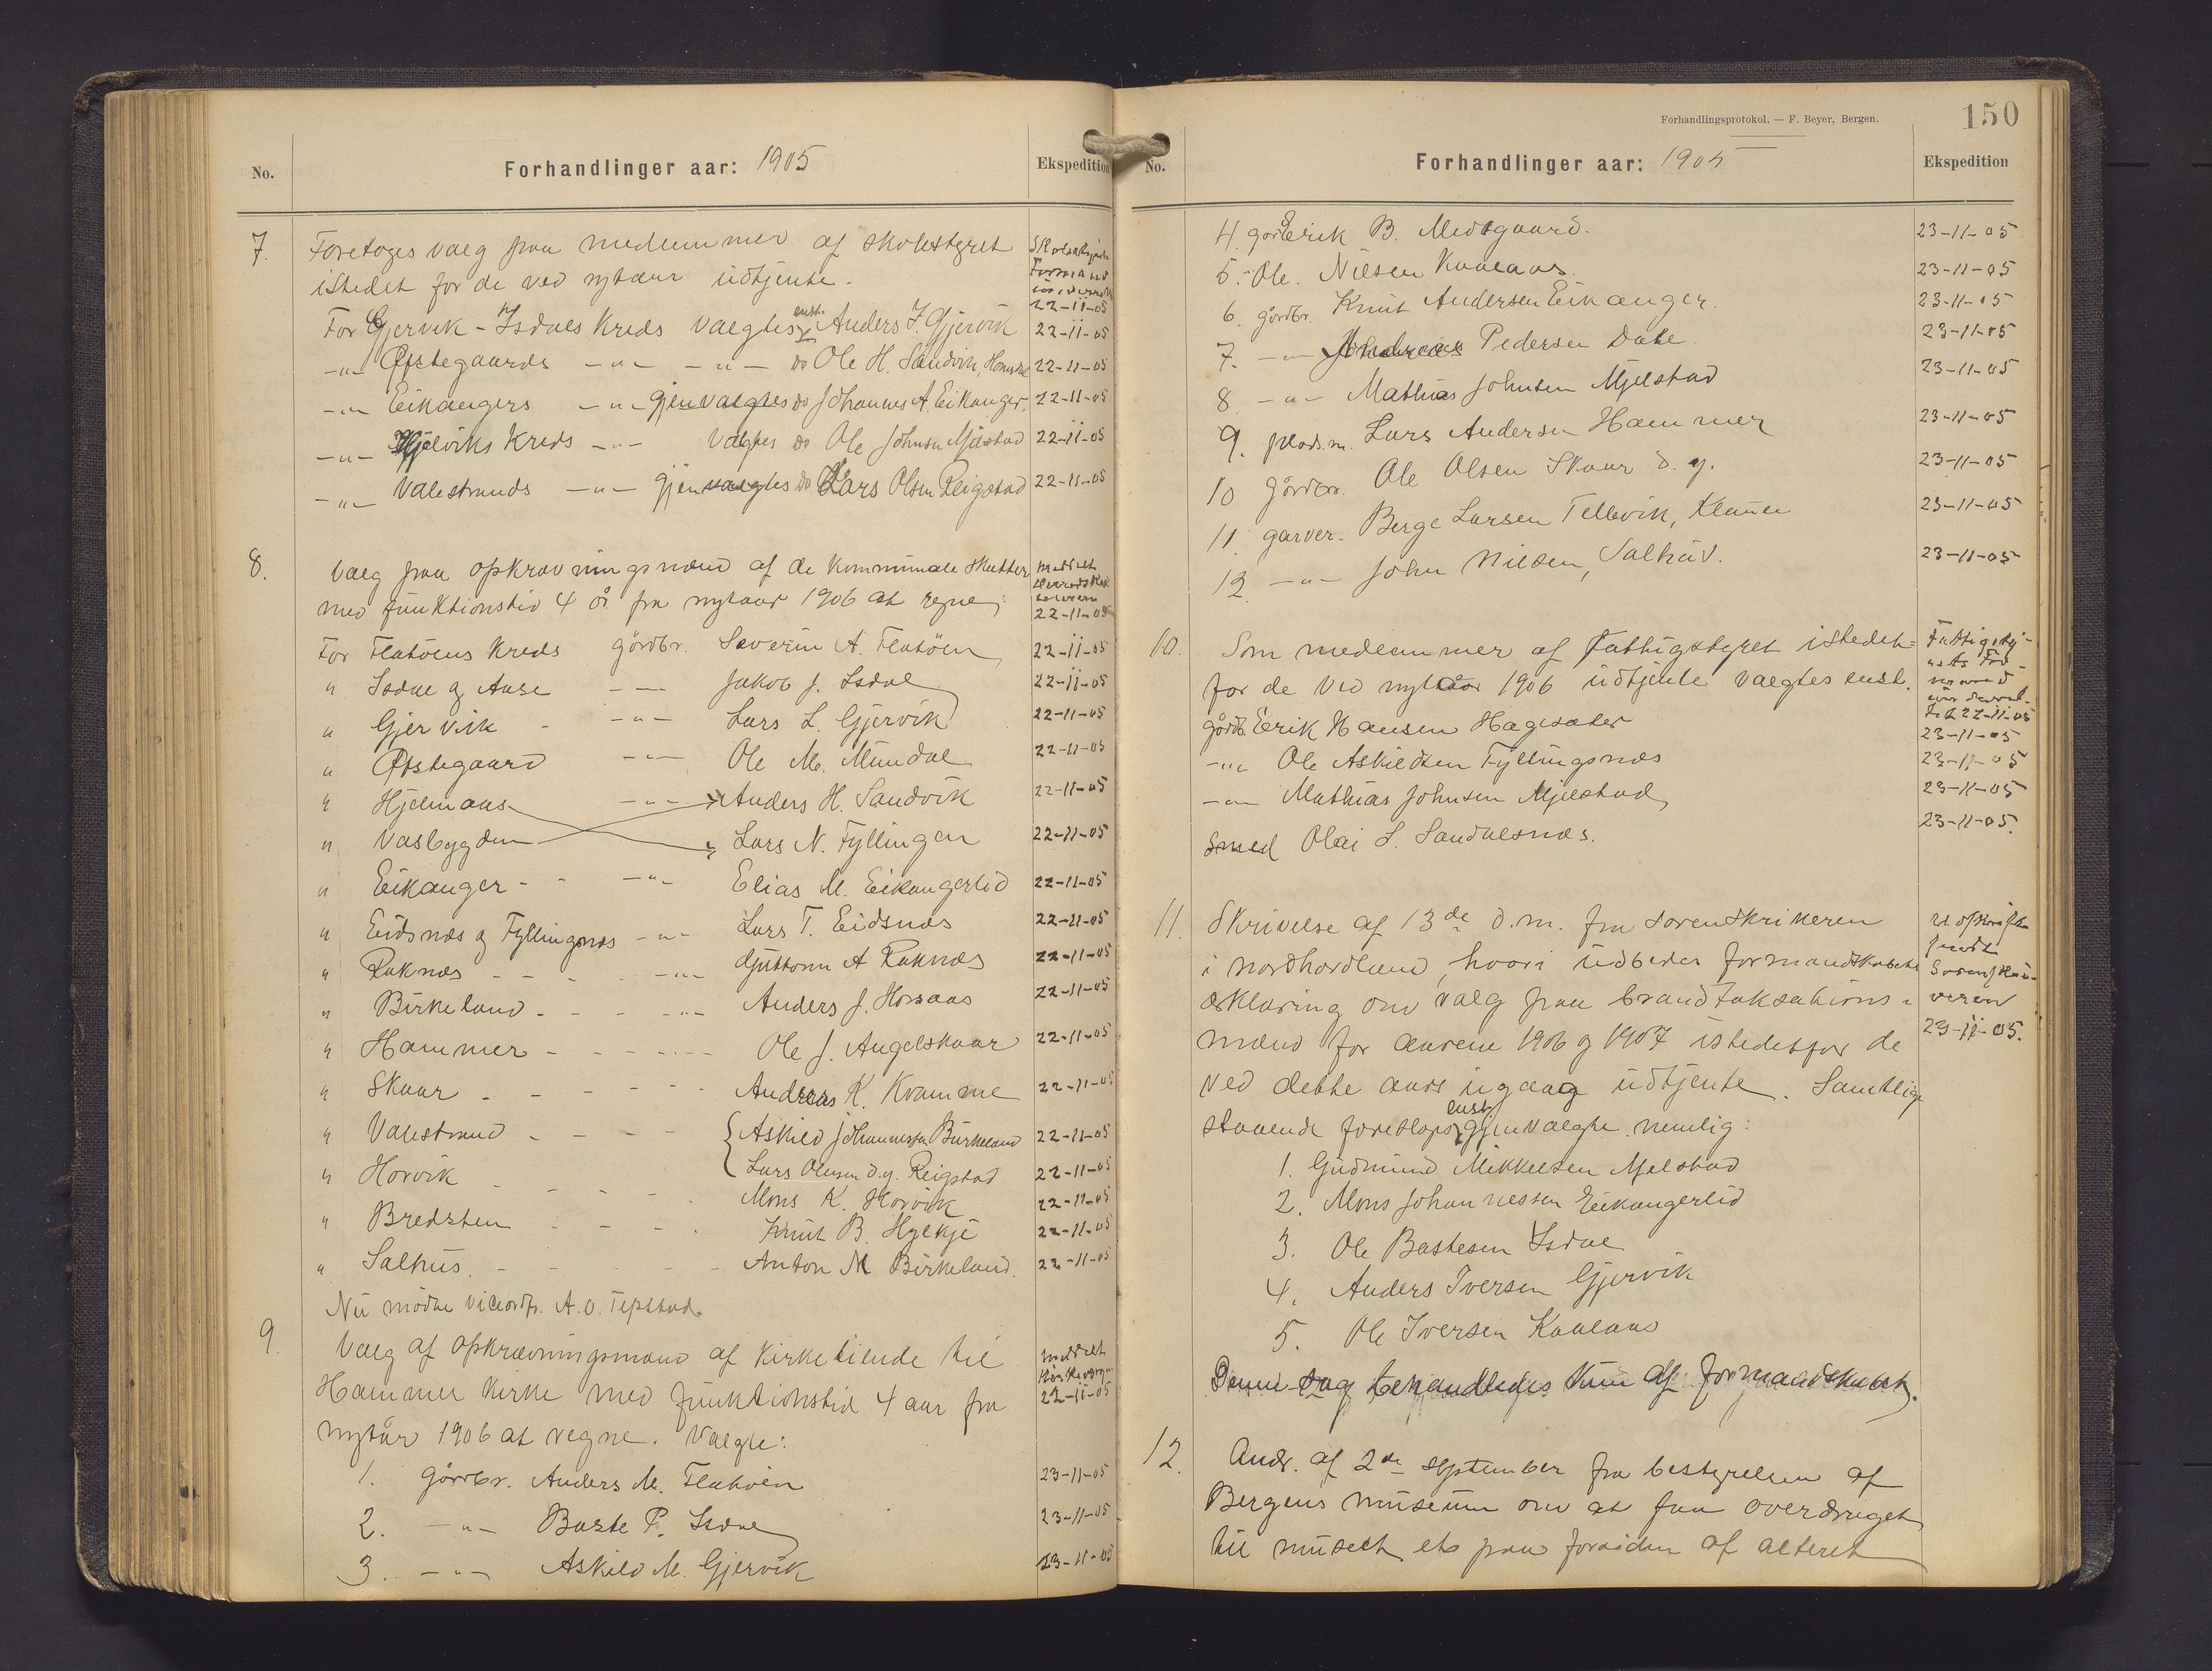 No.
Forhandlinger aar: 1905
Ekspedition
7. Foretoges valg paa medlemmer af skolestyret
istedet for de ved nytaar udtjente.
Skolestyrets
Formand
underrett
22-11-05
For Gjervik-Isdals Kreds valgtes enst. Anders I. Gjervik 22-11-05
-"- Østegaards -"- -"- do Ole H. Sandvik, 22-11-05
-"- Eikangers -"- gjenvalgtes do Johannes A. Eikanger. 22-11-05
-"- Hjelviks Kreds -"- valgtes do Ole Johnsen Mjelstad 22-11-05
-"- Valestrands -"- gjenvalgtes do Lars Olsen Reigstad 22-11-05
8. Valg paa opkrævningsmænd af de kommunale skatter
med funktionstid 4 år fra nytaar 1906 at regne;
meddelt
22-11-05
For Flatöens Kreds gårdbr. Severin A. Flatöen 22-11-05
" Isdal og Aase -"- Jakob J. Isdal 22-11-05
" Gjervik - -"- Lars L. Gjervik 22-11-05
" Østegaard -"- Ole M. Mundal 22-11-05
" Hjelmaas -"- Anders H. Sandvik 22-11-05
" Vasbygden Lars N. Fyllingen 22-11-05
" Eikanger - - -"- Elias M. Eikangerlid 22-11-05
" Eidsnæs og Fyllingsnæs -"- Lars T. Eidsnæs 22-11-05
" Raknæs - - - -"- Guttorm A Raknæs 22-11-05
" Birkeland - - - -"- Anders J. Horsaas 22-11-05
" Hammer - - - - Ole J. Angelskaar 22-11-05
" Skaar - - - - Andreas K. Kvamme 22-11-05
" Valestrand - - - - Askild Johannessen Birkeland 22-11-05
Lars Olsen d.y. Reigstad 22-11-05
" Horvik - - - - Mons K. Horvik 22-11-05
" Bredsten - - - Knut B. Hylkje 22-11-05
" Salhus - - - - Anton M Birkeland. 22-11-05
Nu mødte viceordf. A. O. Tepstad.
9. Valg af opkrævningsmænd af Kirketiende til
Hammer Kirke med funktionstid 4 aar fra
nytår 1906 at regne. Valgte:
meddelt
Kirkeværgen
22-11-05
1. gårdbr. Anders M. Flatöen 23-11-05
2. -"- Baste P. Isdal 23-11-05
3. -"- Askild M. Gjervik 23-11-05
Forhandlingsprotokol. — F. Beyer, Bergen.
150
No.
Forhandlinger aar: 1905
Ekspedition
4. gårdb Erik B. Midtgaard. 23-11-05
5. - Ole Nilsen Kaalaas. 23-11-05
6. gårdbr. Knut Andersen Eikanger. 23-11-05
7. -"- Andreas Pedersen Dale. 23-11-05
8 -"- Mathias Johnsen Mjelstad 23-11-05
9. pladsm. Lars Andersen Hammer 23-11-05
10 gårdbr. Ole Olsen Skaar d. y. 23-11-05
11. garver. Berge Larsen Tellevik, Klauen 23-11-05
12. -"- John Nilsen, Salhus. 23-11-05
10. Som medlemmer af Fattigstyret istedet=
for de ved nytaar 1906 udtjente valgtes enst.
Fattigsty-
rets For-
mand
underret-
tet 22-11-05
gårdb. Erik Hansen Hagesæter 23-11-05
-"- Ole Askildsen Fyllingsnæs 23-11-05
-"- Mathias Johnsen Mjelstad 23-11-05
Smed Olai L. Sandalsnæs. 23-11-05.
11. Skrivelse af 13de d.m. fra sorenskriveren
i nordhordland, hvori udbedes formandskabets
erklæring om valg paa brandtaksations-
mænd for aarene 1906 og 1907 istedetfor de
ved dette aars ugang udtjente. Samtlige
staaende foreslaaes enst. gjenvalgte nemlig:
udskrift
sendt
Sorenskri-
veren
23-11-05.
1. Gudmund Mikkelsen Mjelstad
2. Mons Johannessen Eikangerlid
3. Ole Bastesen Isdal
4. Anders Iversen Gjervik
5. Ole Iversen Kaalaas
Denne sag behandledes kun af formandskabet.
12. Andr. af 2de september fra bestyrelsen af
Bergens museum om at faa overdraget
til museet et paa forsiden af alteret